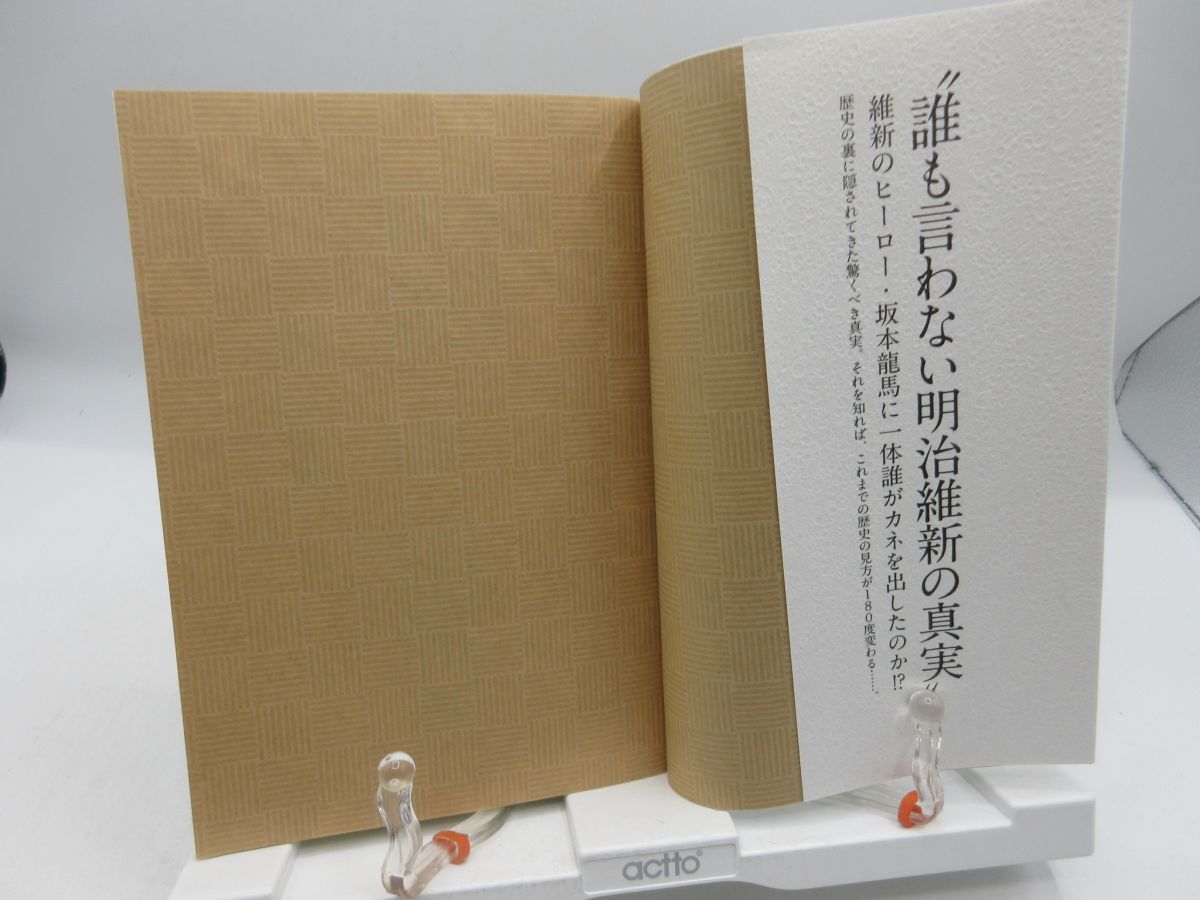 〝誰も言わない明治維新の真実〟
維新のヒーロー・坂本龍馬に一体誰がカネを出したのか!?
歴史の裏に隠されてきた驚くべき真実。それを知れば、これまでの歴史の見方が180度変わる……。
actto